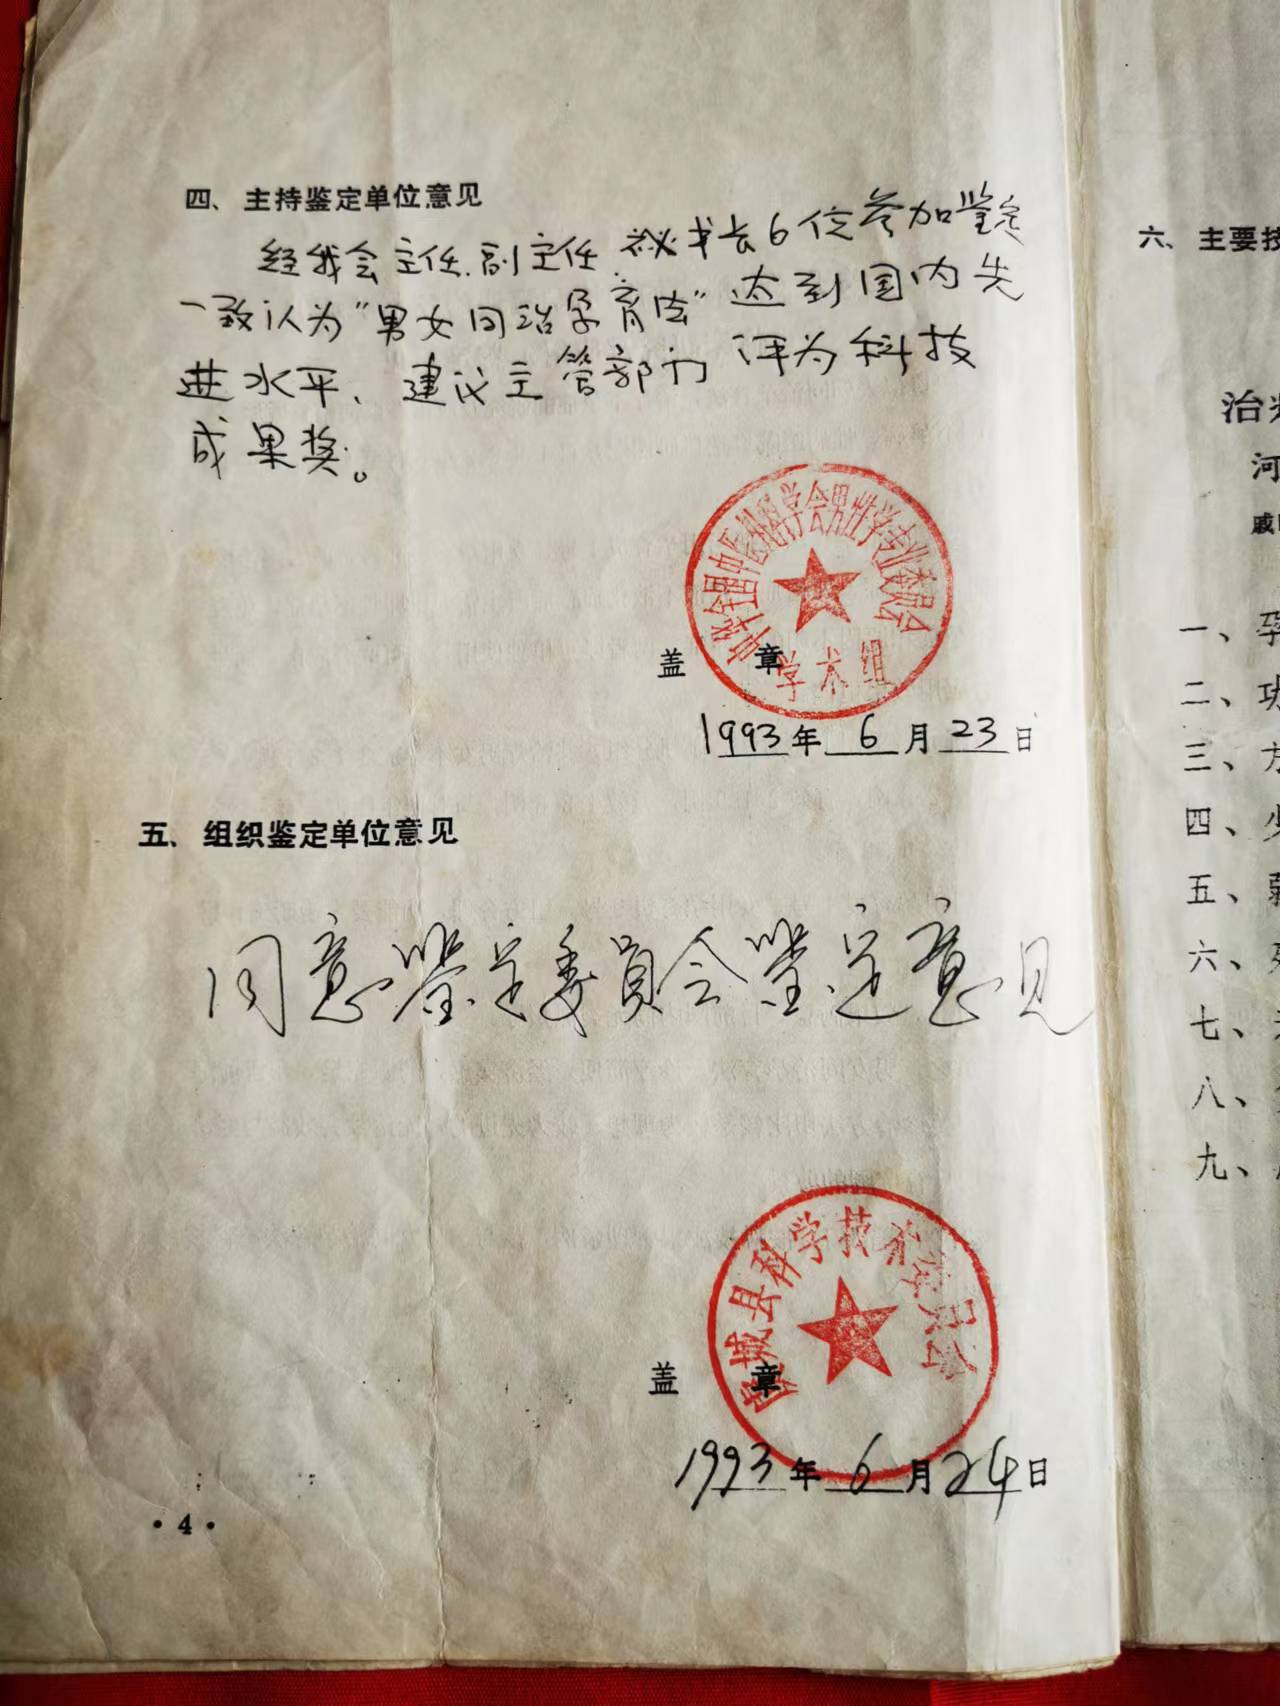 四、主持鉴定单位意见
经我会主任.副主任 秘书长6位参加鉴定
一致认为“男女同治孕育法”达到国内先
进水平、建议主管部门评为科技
成果奖。
中华全国中医外科学会男性学专业委员会
学术组
盖 章
1993年6月23日
五、组织鉴定单位意见
同意鉴定委员会鉴定意见
城县科学技术委员会
盖 章
1993年6月24日
·4·
六、主要技
治
河
戚
一、孕
二、功
三、方
四、少
五、
六、
七、
八、
九、